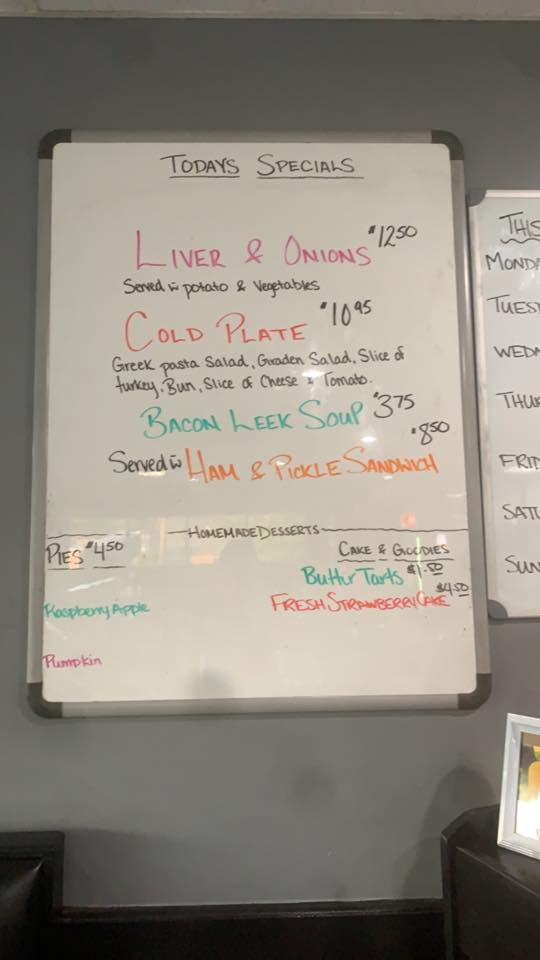 TODAYS SPECIALS
LIVER & ONIONS $12.50
Served w potato & Vegetables
COLD PLATE $10.95
Greek pasta Salad, Graden Salad, Slice of
turkey, Bun, Slice of Cheese & Tomato.
BACON LEEK SOUP $3.75
Served w HAM & PICKLE SANDWICH $8.50
HOMEMADE DESSERTS
PIES $4.50
Raspberry Apple
Pumpkin
CAKE & GOODIES
Butter Tarts $1.50
FRESH STRAWBERRY CAKE $4.50
THIS
MONDA
TUES
WEDN
THUR
FRID
SATU
SUN